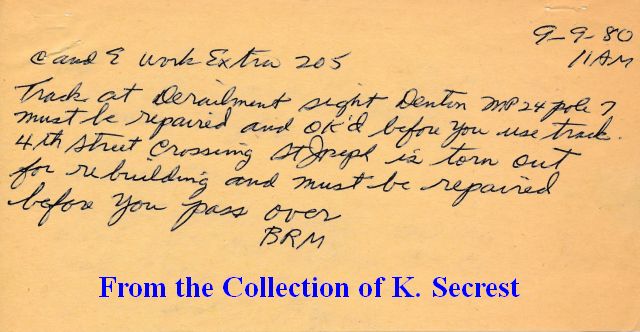 9-9-80
11AM
C and E Work Extra 205
Track at Derailment sight Denton MP 24 pole 7
must be repaired and OK'd before you use track.
4th Street Crossing St Joseph is torn out
for rebuilding and must be repaired
before you pass over
BRM
From the Collection of K. Secrest